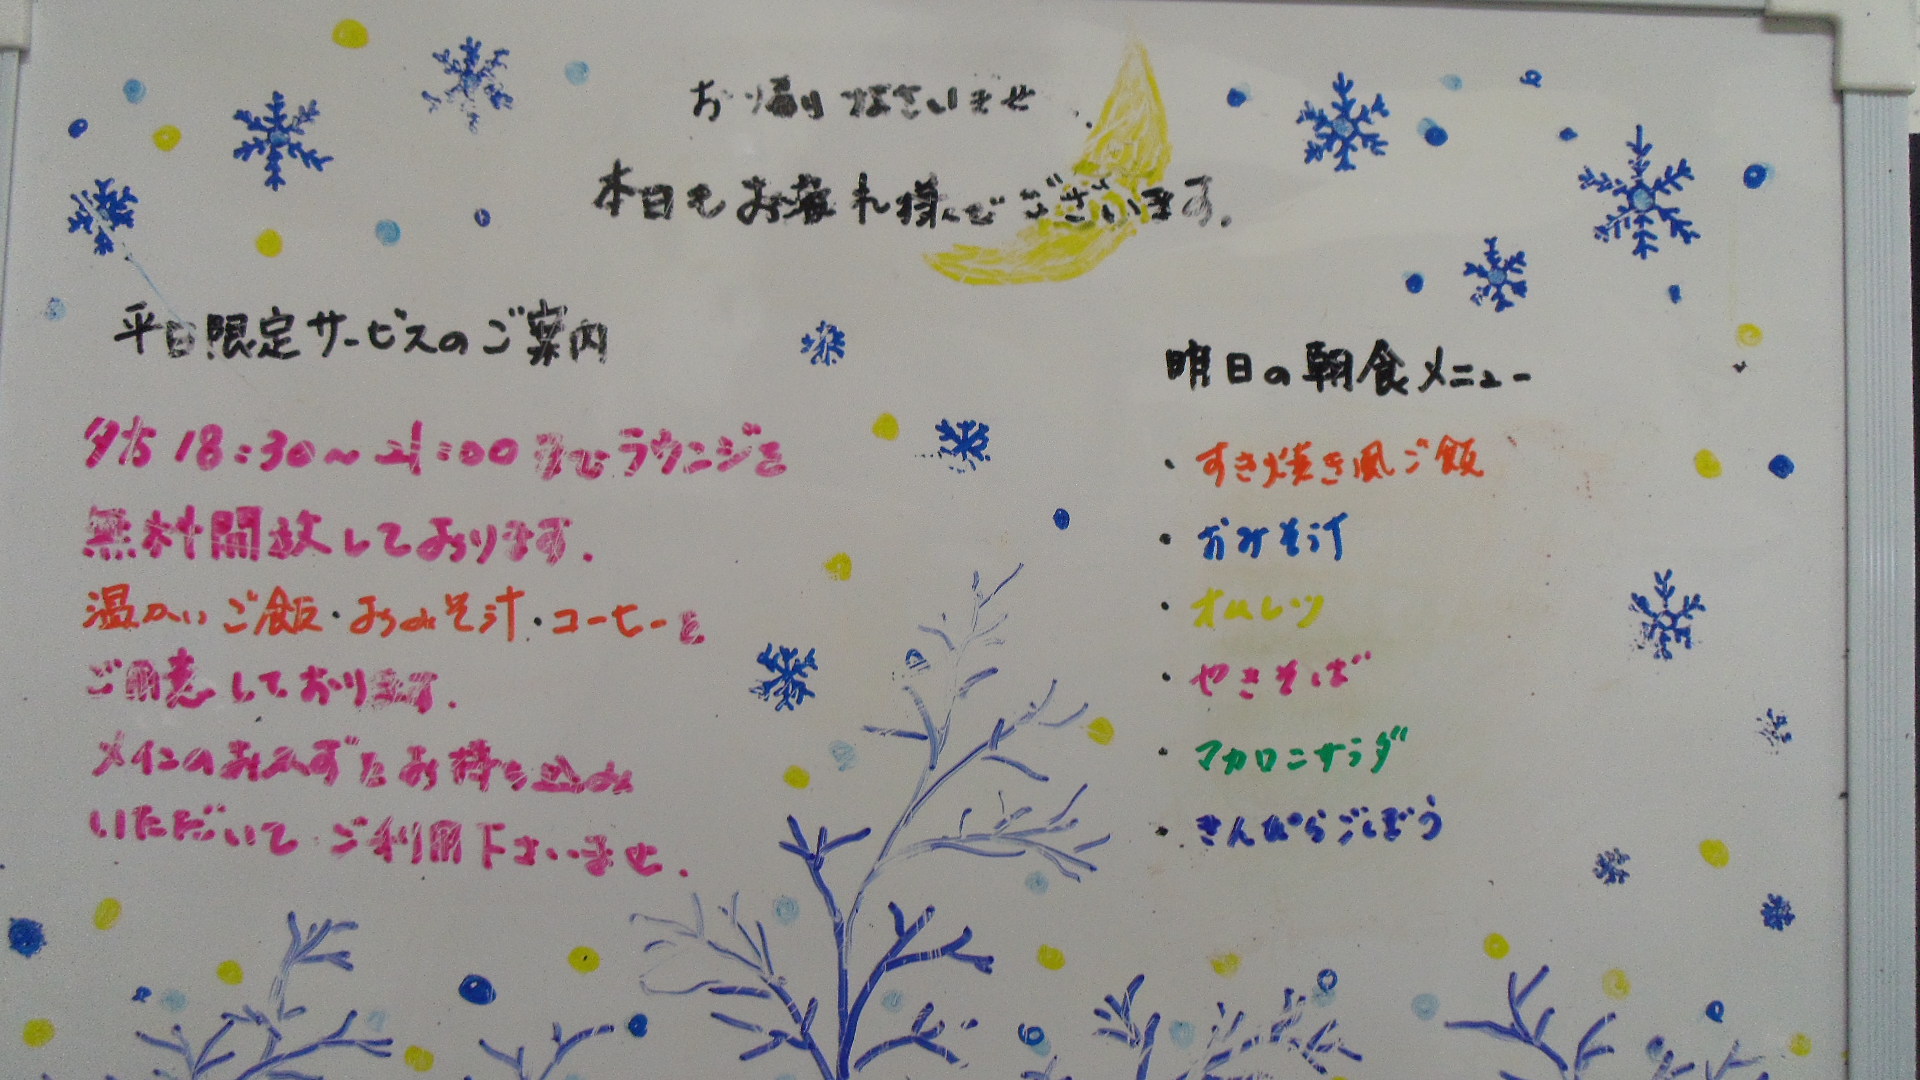 お帰りなさいませ
本日もお疲れ様でございます.
平日限定サービスのご案内
夕方 18:30～21:00 ラウンジを
無料開放しております.
温かいご飯・おみそ汁・コーヒーを
ご用意しております.
メインのおかずをお持ち込み
いただいて ご利用下さいませ.
明日の朝食メニュー
・すき焼き風ご飯
・おみそ汁
・オムレツ
・やきそば
・マカロニサラダ
・きんぴらごぼう